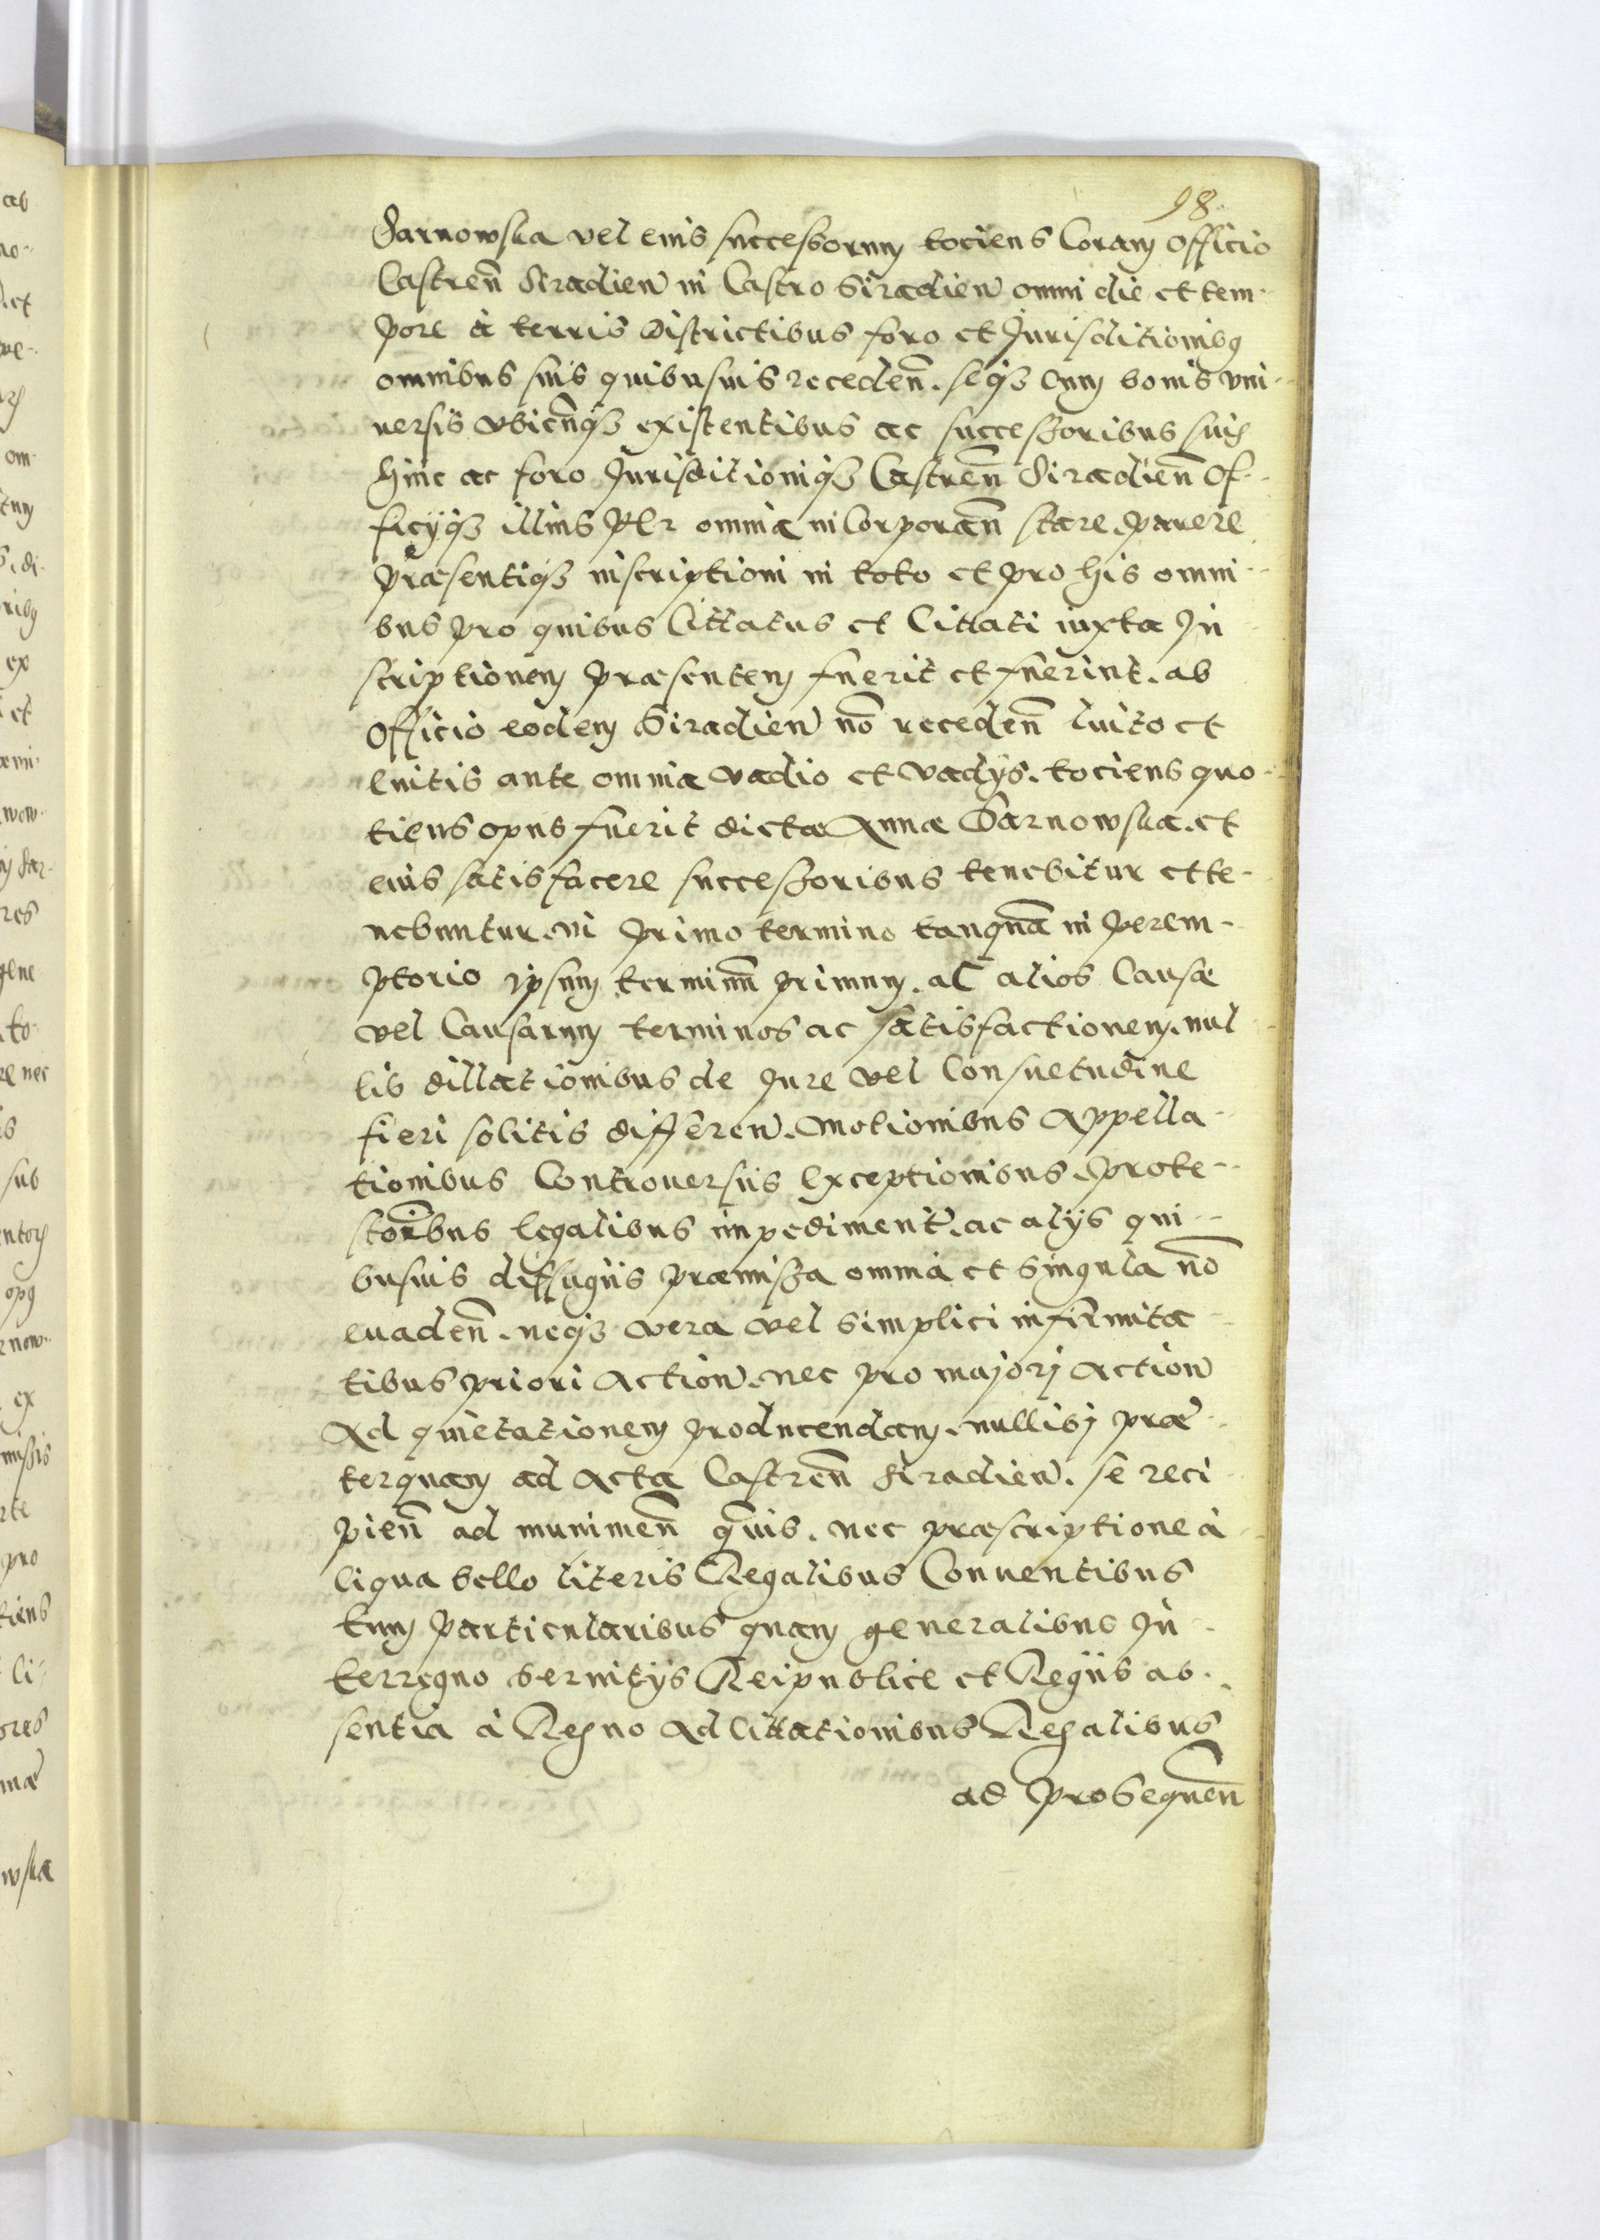 98
Sarnowska vel eius successorum tociens Coram Officio
Castren̄ Siradien̄ in Castro Siradien̄ omni die et tem-
pore à terris districtibus foro et Jurisditionibꝰ
omnibus suis quibusuis receden̄. seqꝫ Cum bonis vni-
uersis vbicunqꝫ existentibus ac successoribus suis
hinc ac foro Jurisditioniqꝫ Castren̄ Siradien̄ Of-
ficyqꝫ illius per omnia incorporan̄ stare, parere
præsentiqꝫ inscriptioni in toto et pro his omni-
bus pro quibus Cittatus et Cittati iuxta In
scriptionem præsentem fuerit et fuerint. ab
Officio eodem Siradien̄ nō receden̄ luito et
luitis ante omnia vadio et vadys. tociens quo-
tiens opus fuerit dictæ Annæ Sarnowska. et
eius satisfacere successoribus tenebitur et te-
nebuntur. in primo termino tanquā in perem-
ptorio ipsum terminū primum. ac alios Causæ
vel Causarum terminos ac satisfactionem. nul
lis dillationibus de Jure vel Consuetudine
fieri solitis differen̄. Motionibus Appella-
tionibus Controuersiis Exceptionibus. prote-
storībus legalibus impediment. ac alijs qui-
busuis diffugiis præmissa omnia et singula nō
euaden̄. neqꝫ vera vel simplici infirmita
tibus priori Action̄. nec pro majorj Action̄
Ad quietationem producendam. nullibj præ-
terquam ad Acta Castren̄ Siradien̄. se reci
pien̄ ad munimen̄ quis. nec præscriptione à
liqua bello literis Regalibus Conuentibus
tum particularibus quam generalibus In-
terregno seruitijs Reipublice et Regiis ab-
sentia à Regno Adcittationibus Regalibus
ad prosequen̄